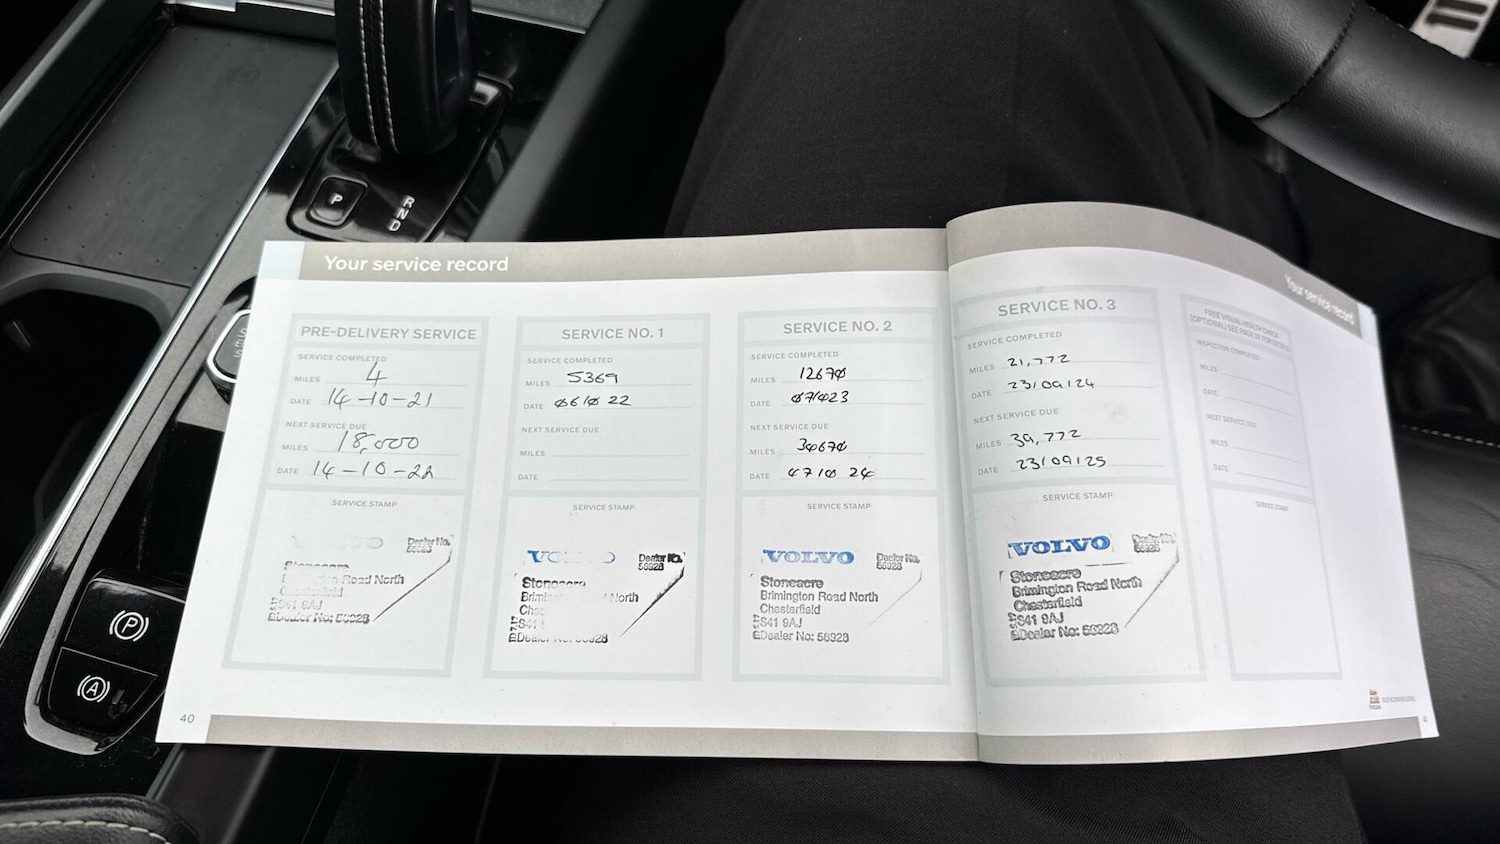 P
R
N
D
Your service record
PRE-DELIVERY SERVICE
SERVICE COMPLETED
MILES 4
DATE 14-10-21
NEXT SERVICE DUE
MILES 18,000
DATE 14-10-22
SERVICE STAMP
Dealer No.
56928
Stoneacre
Road North
Chesterfield
S41 9AJ
Dealer No: 56928
SERVICE NO. 1
SERVICE COMPLETED
MILES 5369
DATE 06/0 22
NEXT SERVICE DUE
MILES
DATE
SERVICE STAMP
Dealer No.
56928
Stoneacre
North
S41
Dealer No: 56928
SERVICE NO. 2
SERVICE COMPLETED
MILES 12670
DATE
NEXT SERVICE DUE
MILES 30670
DATE
SERVICE STAMP
VOLVO
Dealer No.
56928
Stoneacre
Brimington Road North
Chesterfield
S41 9AJ
Dealer No: 56928
40
Your service record
SERVICE NO. 3
SERVICE COMPLETED
MILES 21,772
DATE 23/09/24
NEXT SERVICE DUE
MILES 39,772
DATE 23/09/25
SERVICE STAMP
VOLVO
Dealer No.
56928
Stoneacre
Brimington Road North
Chesterfield
S41 9AJ
Dealer No: 56928
FREE VISUAL HEALTH CHECK
(OPTIONAL) SEE PAGE 37 FOR DETAILS
INSPECTION COMPLETED
MILES
DATE
NEXT SERVICE DUE
MILES
DATE
SERVICE STAMP
P
A